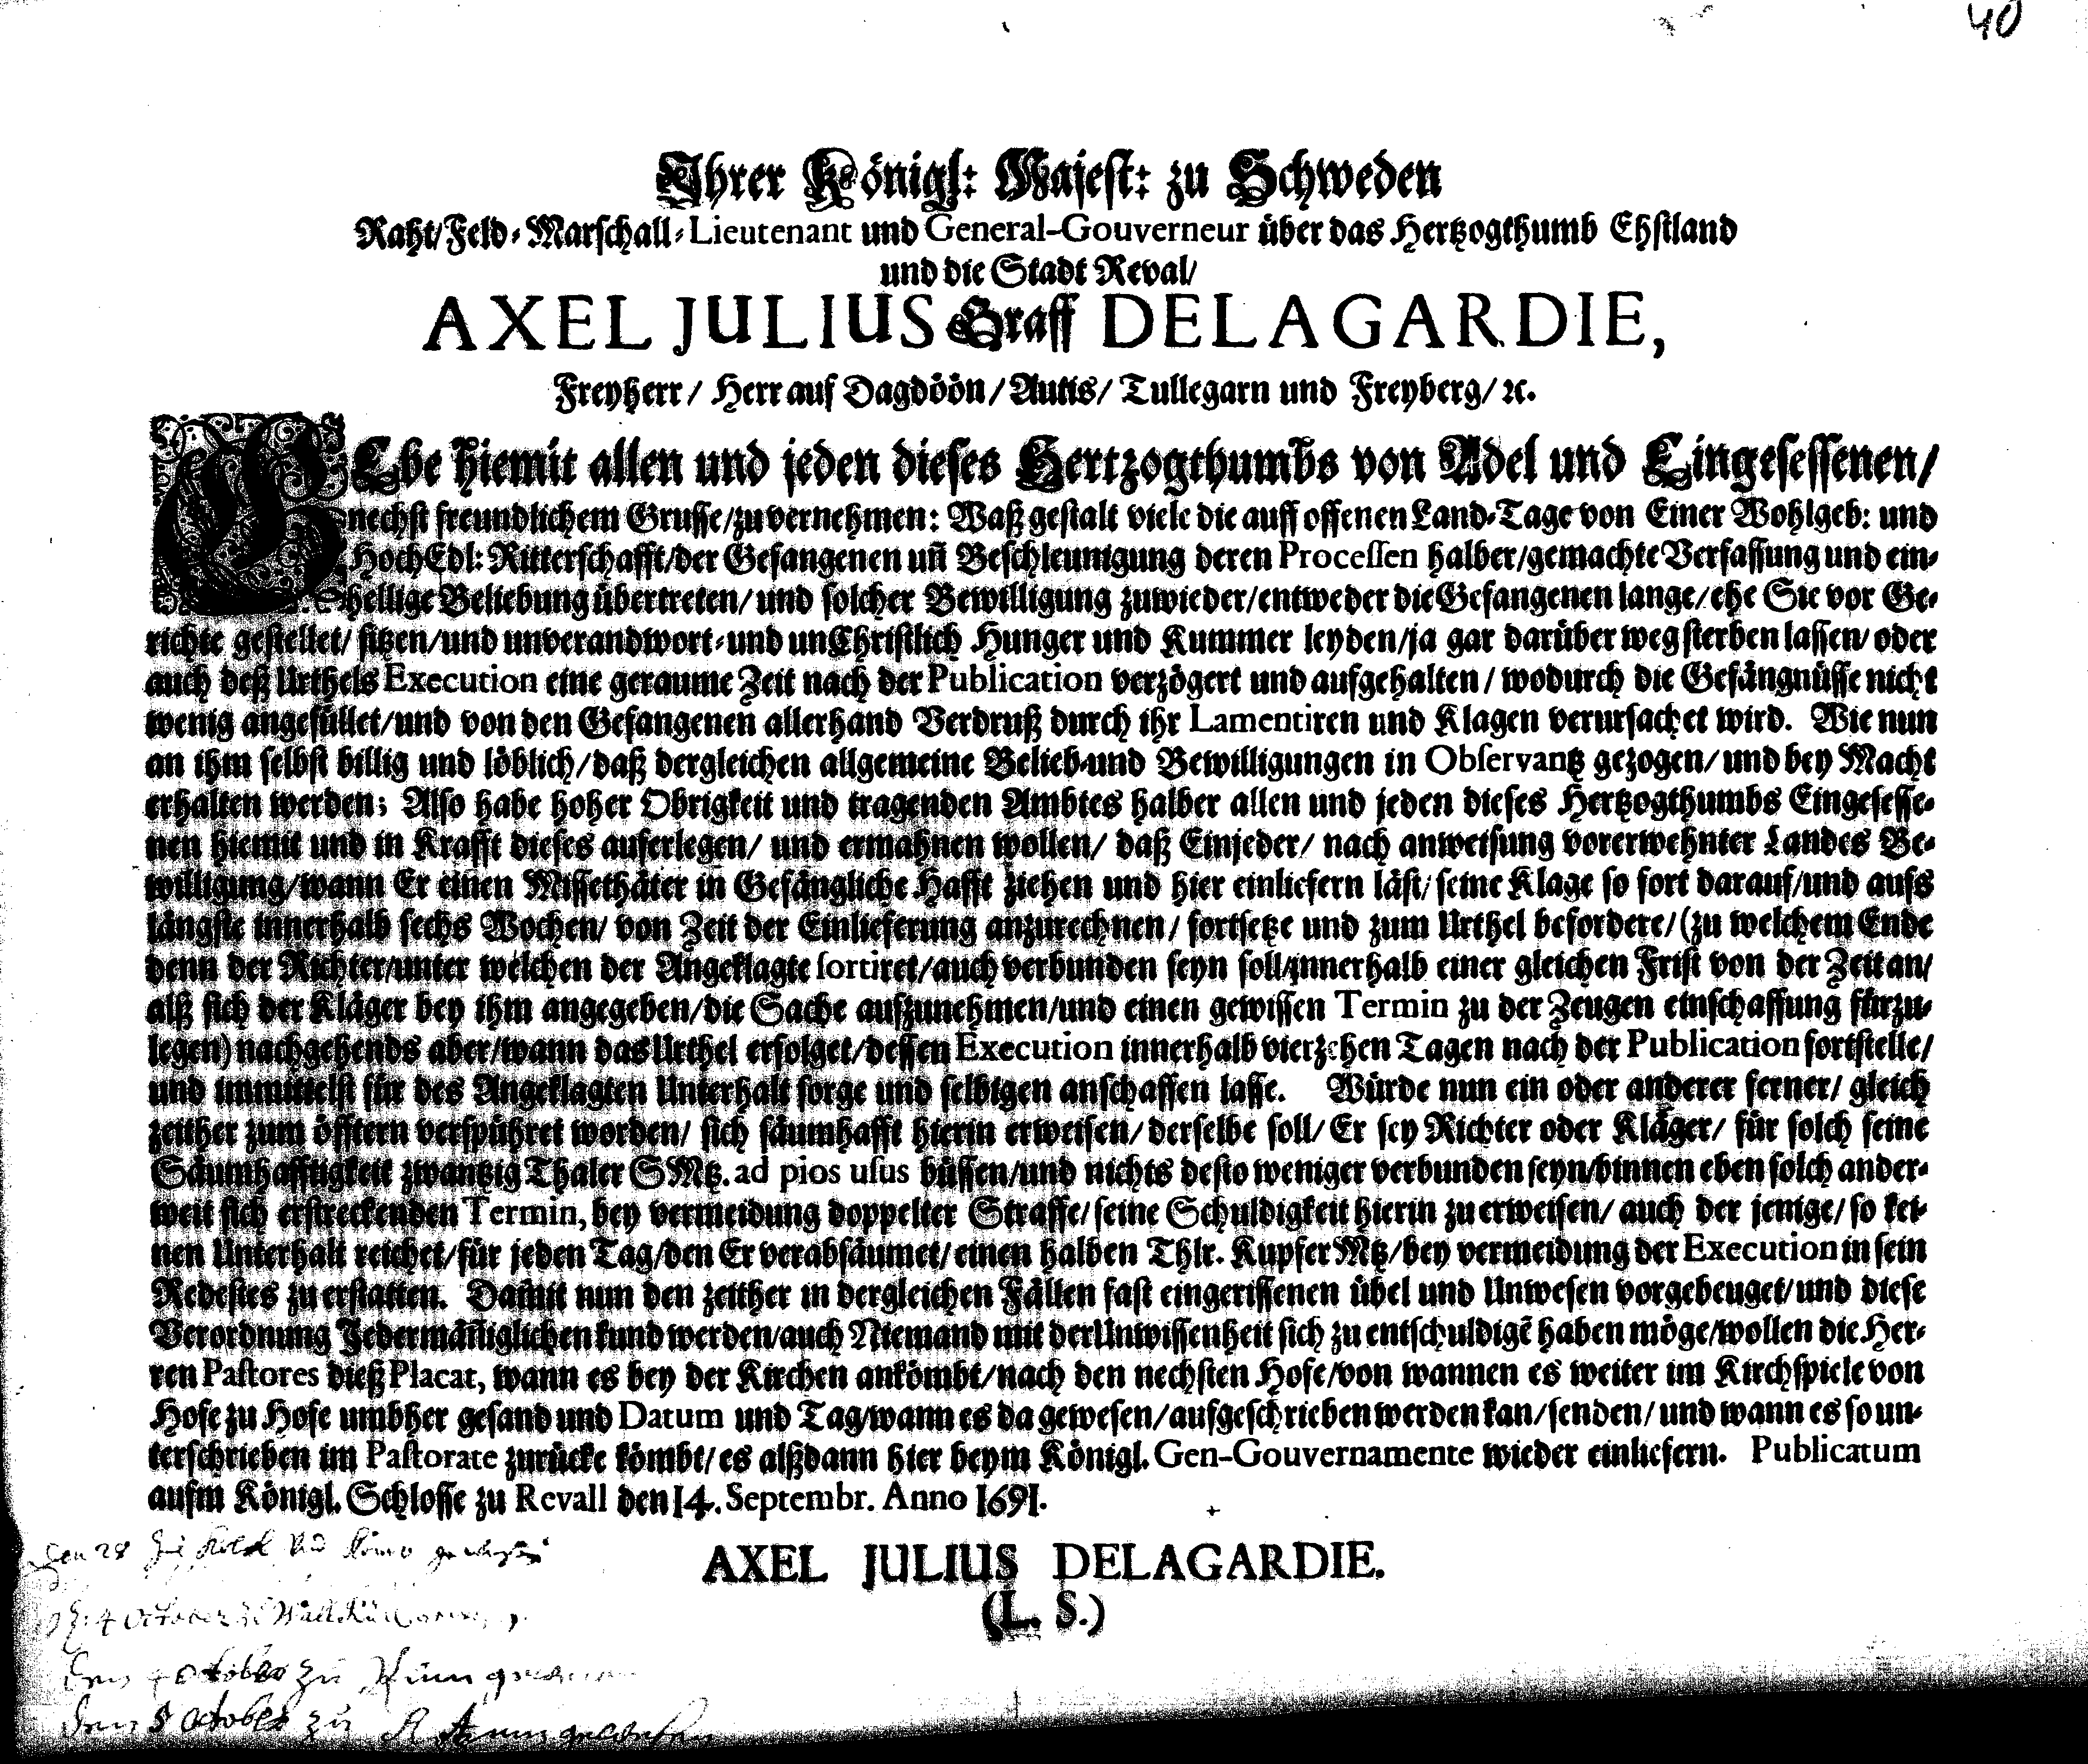 40
Ihrer Königl: Majest: zu Schweden
Raht/Feld-Marschall-Lieutenant und General-Gouverneur über das Hertzogthumb Ehstland
und die Stadt Reval/
AXEL JULIUS Graff DELAGARDIE,
Freyherr/ Herr auf Dagdöön/Autis/ Tullegarn und Freyberg/ꝛc.
GEbe hiemit allen und jeden dieses Hertzogthumbs von Adel und Eingesessenen/
nechst freundlichem Grusse/zu vernehmen: Waß gestalt viele die auff offenen Land-Tage von Einer Wohlgeb: und
HochEdl: Ritterschafft/der Gefangenen uñ Beschleunigung deren Processen halber/gemachte Verfassung und ein-
hellige Beliebung übertreten/und solcher Bewilligung zuwieder/entweder die Gefangenen lange/ehe Sie vor Ge-
richte gestellet/ sitzen/und unverandwort-und unChristlich Hunger und Kummer leyden/ja gar darüber weg sterben lassen/oder
auch deß Urthels Execution eine geraume Zeit nach der Publication verzögert und aufgehalten/wodurch die Gefängnüsse nicht
wenig angefüllet/und von den Gefangenen allerhand Verdruß durch ihr Lamentiren und Klagen verursachet wird. Wie nun
an ihm selbst billig und löblich/daß dergleichen allgemeine Belieb-und Bewilligungen in Observantz gezogen/und bey Macht
erhalten werden; Also habe hoher Obrigkeit und tragenden Ambtes halber allen und jeden dieses Hertzogthumbs Eingesesse-
nen hiemit und in Krafft dieses auferlegen/ und ermahnen wollen/ daß Einjeder/ nach anweisung vorerwehnter Landes Be-
willigung/wann Er einen Missethäter in Gefängliche Hafft ziehen und hier einliefern läst/seine Klage so fort darauf/und aufs
längste innerhalb sechs Wochen/ von Zeit der Einlieferung anzurechnen/ fortsetze und zum Urthel befordere/(zu welchem Ende
denn der Richter/unter welchen der Angeklagte sortiret/auch verbunden seyn soll/innerhalb einer gleichen Frist von der Zeit an/
alß sich der Kläger bey ihm angegeben/die Sache aufzunehmen/und einen gewissen Termin zu der Zeugen einschaffung fürzu-
legen) nachgehends aber/wann das Urthel erfolget/dessen Execution innerhalb vierzehen Tagen nach der Publication fortstelle/
und immittelst für des Angeklagten Unterhalt sorge und selbigen anschaffen lasse. Würde nun ein oder anderer ferner/ gleich
zeither zum öfftern verspühret worden/ sich säumhafft hierin erweisen/derselbe soll/Er sey Richter oder Kläger/ für solch seine
Säumhafftigkeit zwantzig Thaler SMtz. ad pios usus büssen/und nichts desto weniger verbunden seyn/binnen eben solch ander-
weit sich erstreckenden Termin, bey vermeidung doppelter Straffe/seine Schuldigkeit hierin zu erweisen/ auch der jenige/so kei-
nen Unterhalt reichet/für jeden Tag/den Er verabsäumet/einen halben Thlr. Kupfer Mtz/bey vermeidung der Execution in sein
Redestes zu erstatten. Damit nun den zeither in dergleichen Fällen fast eingerissenen übel und Unwesen vorgebeuget/und diese
Verordnung Jedermänniglichen kund werden/auch Niemand mit der Unwissenheit sich zu entschuldigẽ haben möge/wollen die Her-
ren Pastores dieß Placat, wann es bey der Kirchen ankömbt/nach den nechsten Hofe/von wannen es weiter im Kirchspiele von
Hofe zu Hofe umbher gesand und Datum und Tag/wann es da gewesen/aufgeschrieben werden kan/senden/ und wann es so un-
terschrieben im Pastorate zurücke kömbt/es alßdann hier beym Königl. Gen-Gouvernamente wieder einliefern. Publicatum
aufm Königl. Schlosse zu Revall den 14. Septembr. Anno 1691.
AXEL JULIUS DELAGARDIE.
(L. S.)
Den 28
4 October
October zu
Den 5 October zu